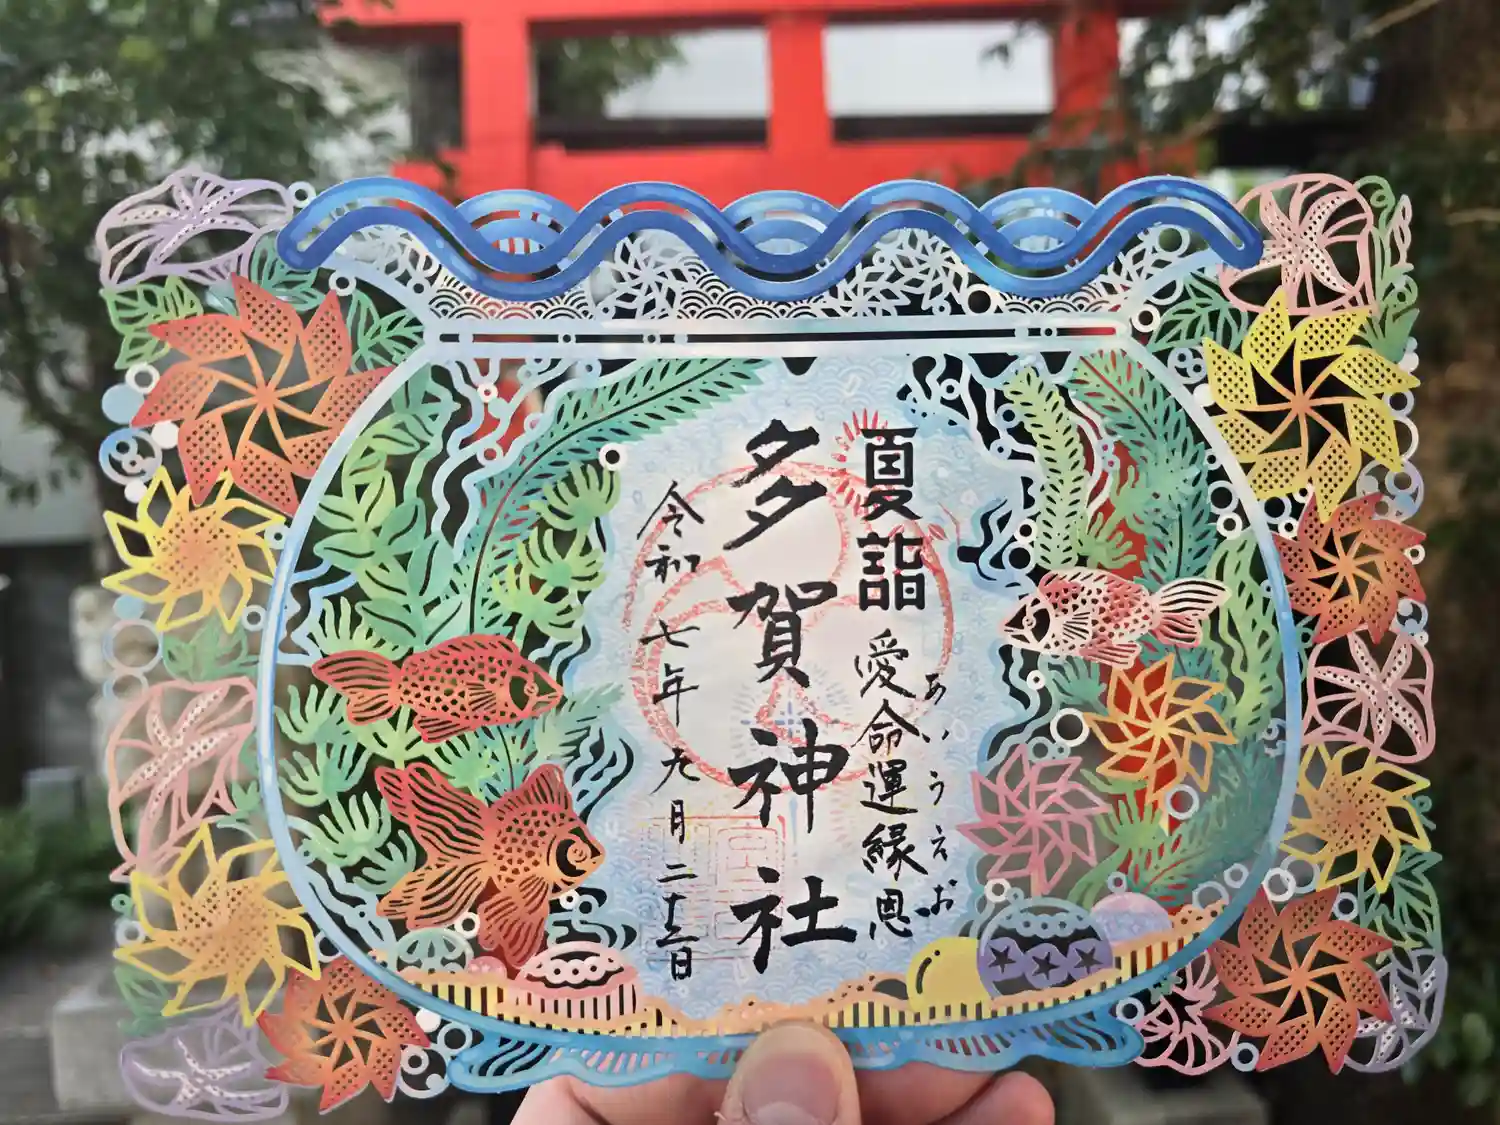 夏詣
愛命運縁恩
あいうえお
多賀神社
令和七年九月二十二日